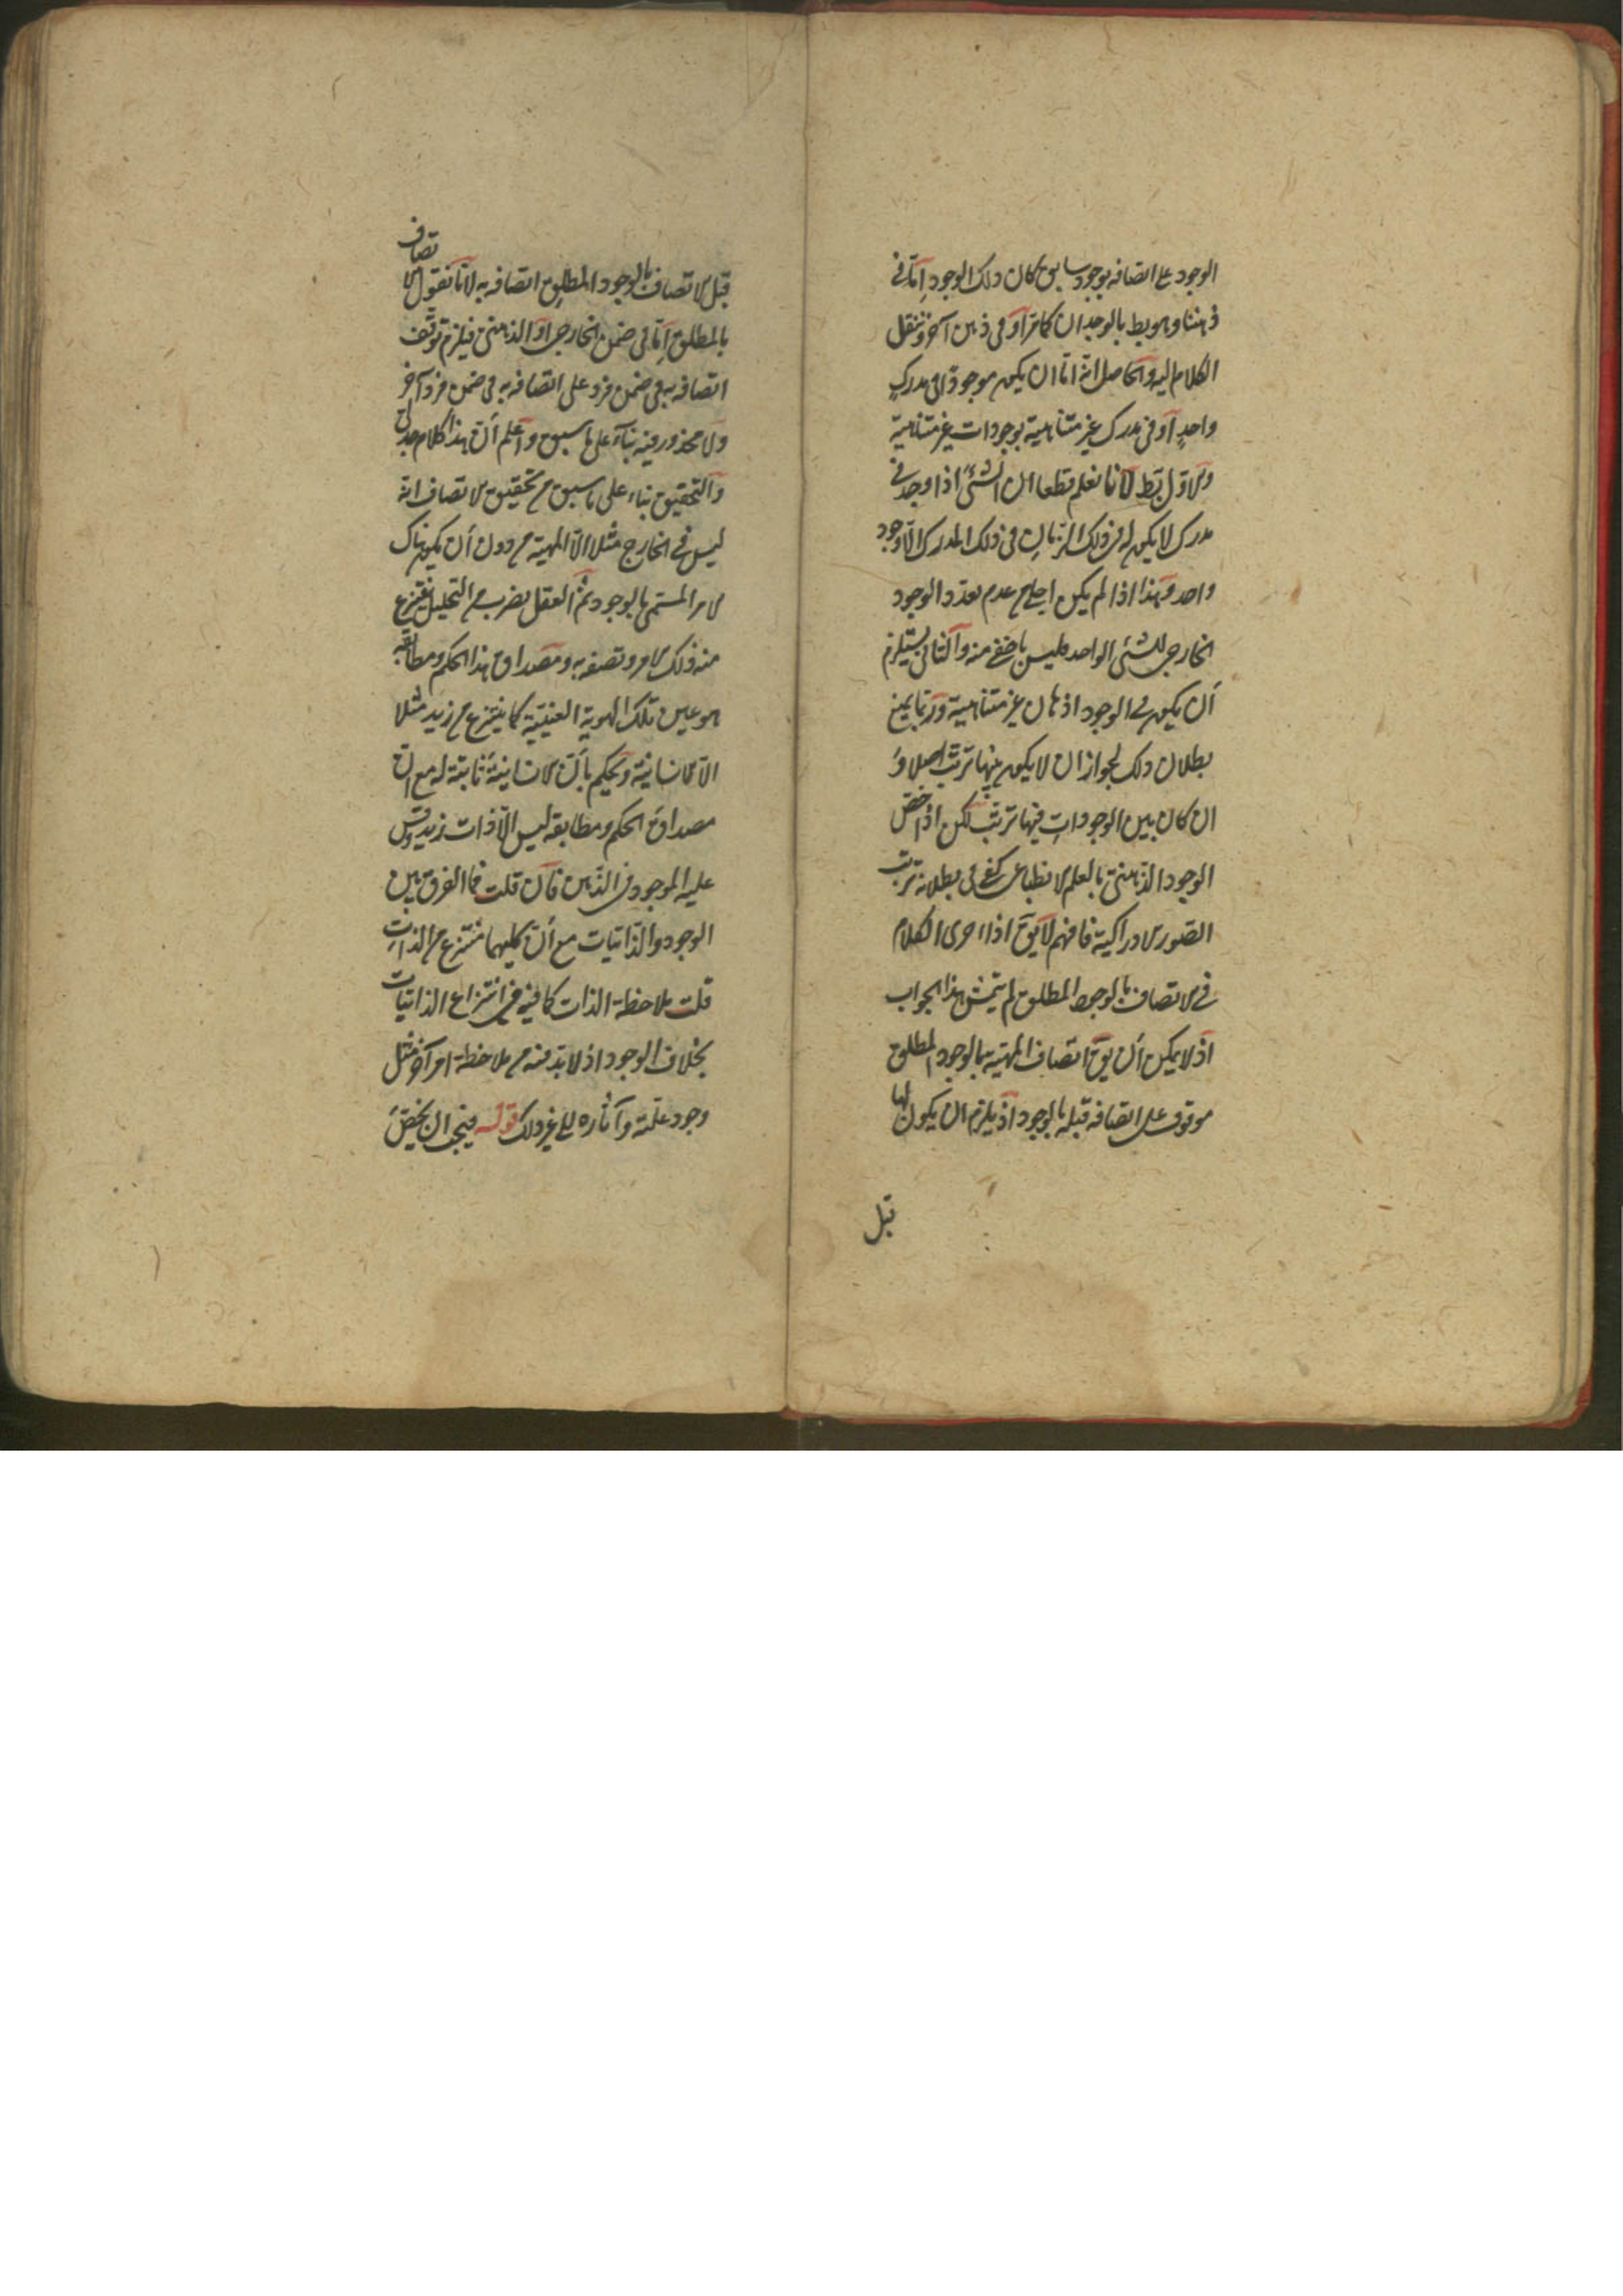 الوجود على اتصافه بوجود سابق كان ذلك الوجود إمّا في
ذهننا وهو بط بالوجدان كما مرّ أو في ذهن آخر وننقل
الكلام اليه والحاصل انه اما ان يكون موجودا في مدرك
واحدٍ أو في مدرك غير متناهية بوجودات غير متناهية
والاوّل بط لأنا نعلم قطعا ان الشئ اذا وجد في
مدرك لا يكون له في ذلك الزمان في ذلك المدرك الّا وجود
واحد وهذا اذا لم يكن اجلى من عدم تعدد الوجود
الخارجي للشئ الواحد فليس باخفى منه والثاني يستلزم
أن يكون في الوجود اذهان غير متناهية وربّما يمنع
بطلان ذلك لجواز ان لا يكون بينها ترتّب اصلا و
ان كان بين الوجودات فيها ترتّب لكن اذا خصّ
الوجود الذهنيّ بالعلم الانطباعى كفى في بطلانه ترتّب
الصور الادراكية فافهم لا يقَ اذا اجرى الكلام
في الاتصاف بالوجود المطلق لم يتمشّ هذا الجواب
اذ لا يمكن أن يقَ اتصاف المهيّة بالوجود المطلق
موقوف على اتصافه قبله بالوجود اذ يلزم ان يكون لها
قبل
قبل الاتصاف بالوجود المطلق اتصافه به لانّا نقول الاتصاف
بالمطلق إمّا في ضمن الخارجي او الذهنيّ فيلزم توقّف
اتصافه به في ضمن فرد على اتصافه به في ضمن فرد آخر
ولا محذور فيه بناءً على ما سبق واعلم أنّ هذا كلام جدليّ
والتحقيق بناء على ما سبق من تحقيق الاتصاف انه
ليس في الخارج مثلا الّا المهيّة من دون أن يكون هناك
الامر المسمّى بالوجود ثمّ العقل بضرب من التحليل ينتزع
منه ذلك الامر وتصفه به ومصداق هذا الحكم ومطابقه
هو عين تلك الهوية العينيّة كما ينتزع من زيد مثلا
الانسانيّة ويحكم بأنّ الانسانيّة ثابتة له مع انّ
مصداق الحكم ومطابقه ليس الّا ذات زيد وقس
عليه الموجود في الذّهن فان قلت فما الفرق بين
الوجود والذّاتيات مع أنّ كليهما منتزع من الذات
قلت ملاحظة الذات كافية في انتزاع الذاتيات
بخلاف الوجود اذ لا بدّ فيه من ملاحظة امر آخر مثل
وجود علّته وآثاره الى غير ذلك قوله فيجب ان يخصّ